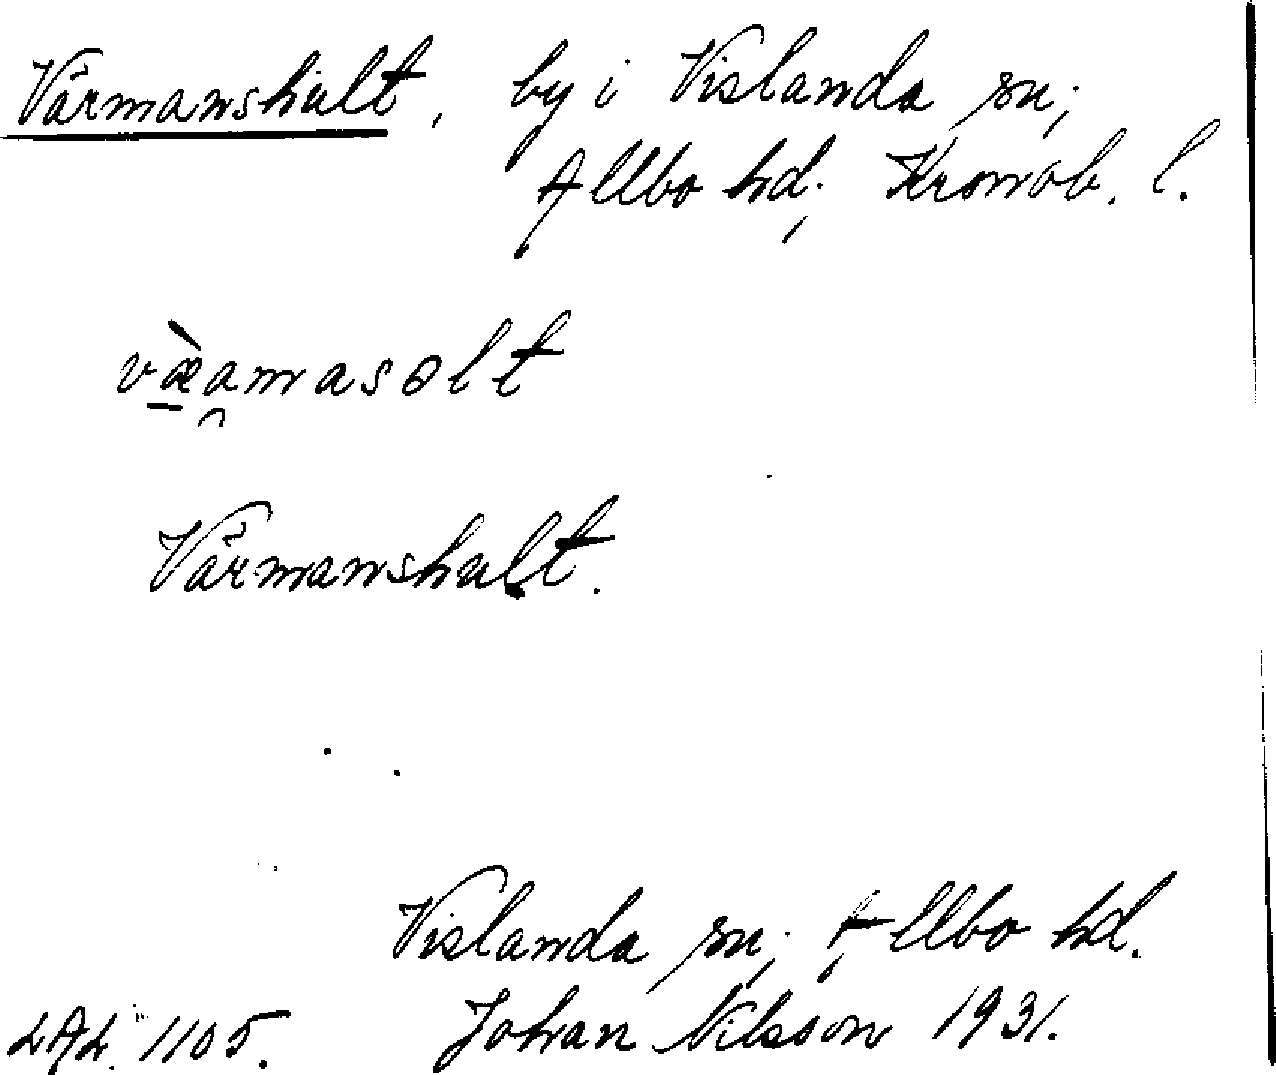 Värmanshult, by i Vislanda sn;
Allbo hd; Kronob. l.
væ̀amasolt
Värmanshult.
Vislanda sn; Allbo hd.
LAL. 1105. Johan Nilsson 1931.